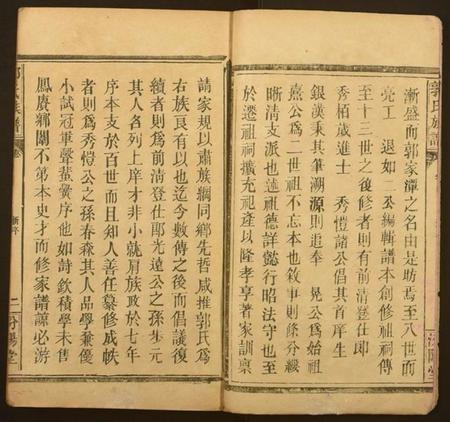 郭氏族譜
漸盛而郭家潭之名由是昉焉至八世而
亮工 退如二公編輯譜本創修祖祠傳
至十三世之後修者則有前清進士
秀栢歲進士 秀愷諸公倡其首庠生
銀漢秉其筆溯源則追奉 晃公爲始祖
燾公爲二世祖不忘本也敘事則條分縷
晰清支派也述祖德詳懿行昭法守也至
於遷祖祠擴充祀產以隆孝享著家訓稟
請家規以肅族綱同鄉先哲咸推郭氏爲
右族良有以也迄今數傳之後而倡議復
續者則爲前清登仕郎光遠公之孫步元
其人各列上庠才非小就肩族政於七年
序本支於百世而且知人善任纂修咸帙
者則爲秀愷公之孫春森其人品學兼優
小試冠軍聲蜚黌序他如詩欽積學未售
鳳賡鄉闈不第本史才而修家譜諒必游
新序
二 汾陽堂